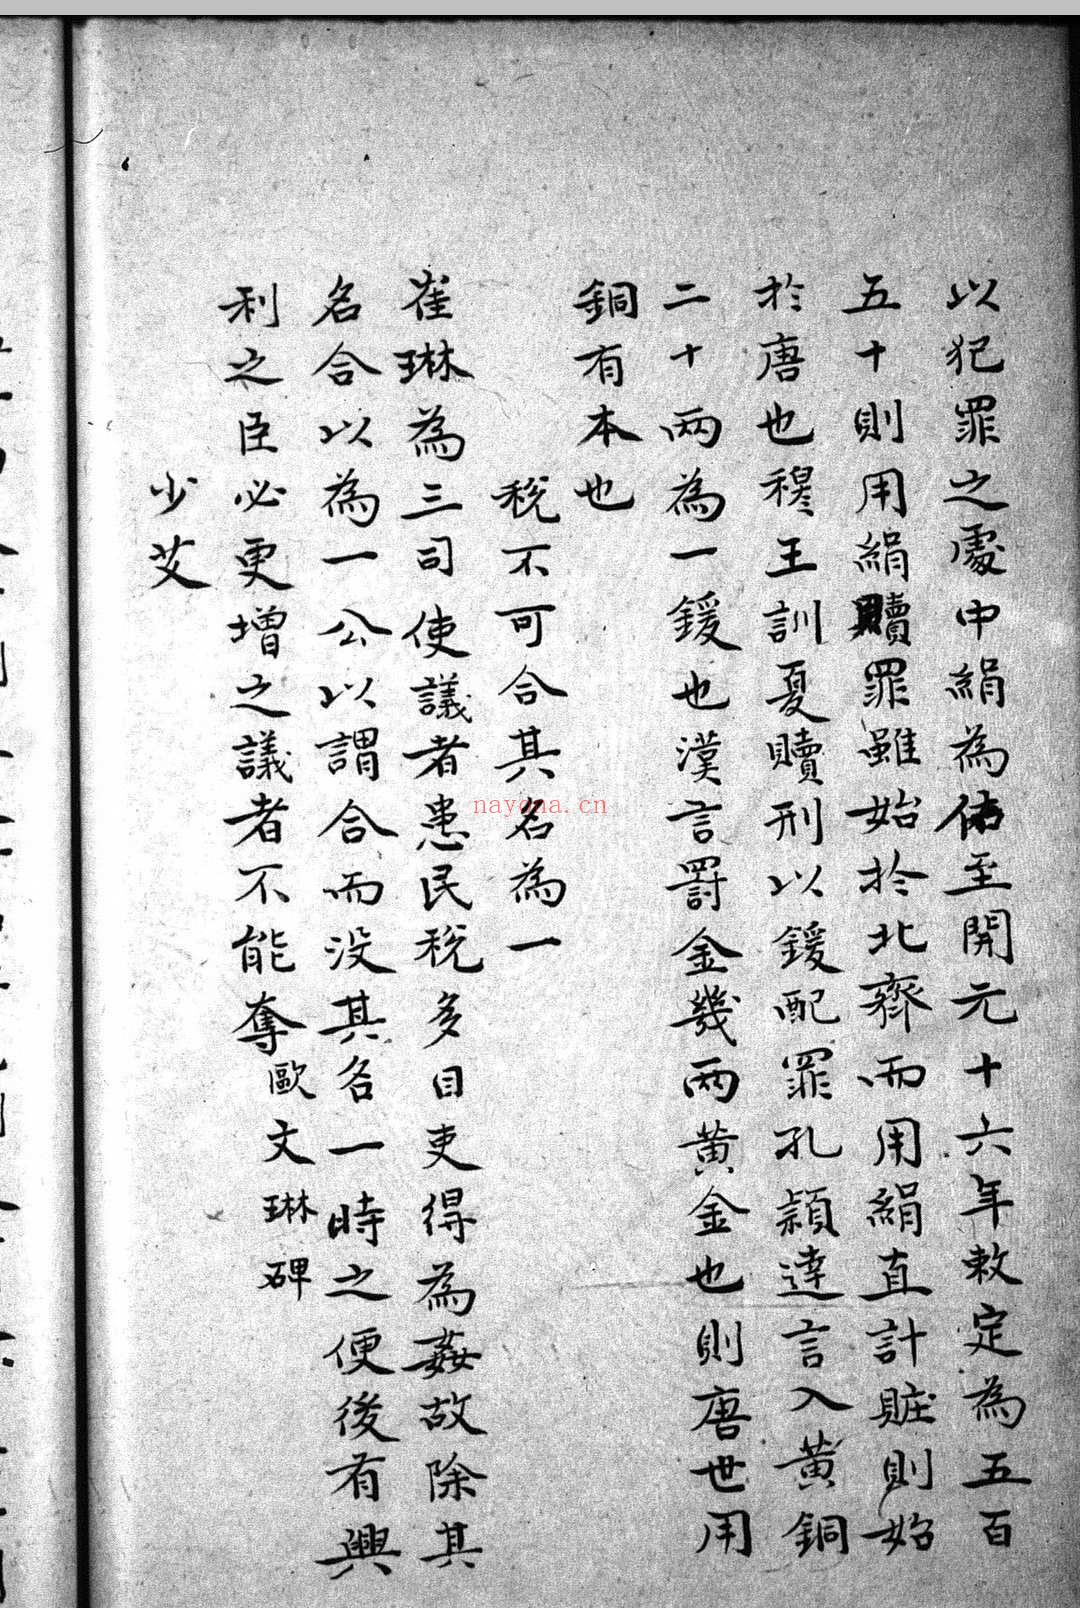 以犯罪之處中絹為估至開元十六年敕定為五百
五十則用絹贖罪雖始於北齊而用絹直計賍則始
於唐也穆王訓夏贖刑以鍰配罪孔穎達言入黃銅
二十兩為一鍰也漢言罰金幾兩黃金也則唐世用
銅有本也
稅不可合其名為一
崔琳為三司使議者患民稅多目吏得為姦故除其
名合以為一公以謂合而没其名一時之便後有興
利之臣必更增之議者不能奪歐文琳碑
少艾
nayona.cn